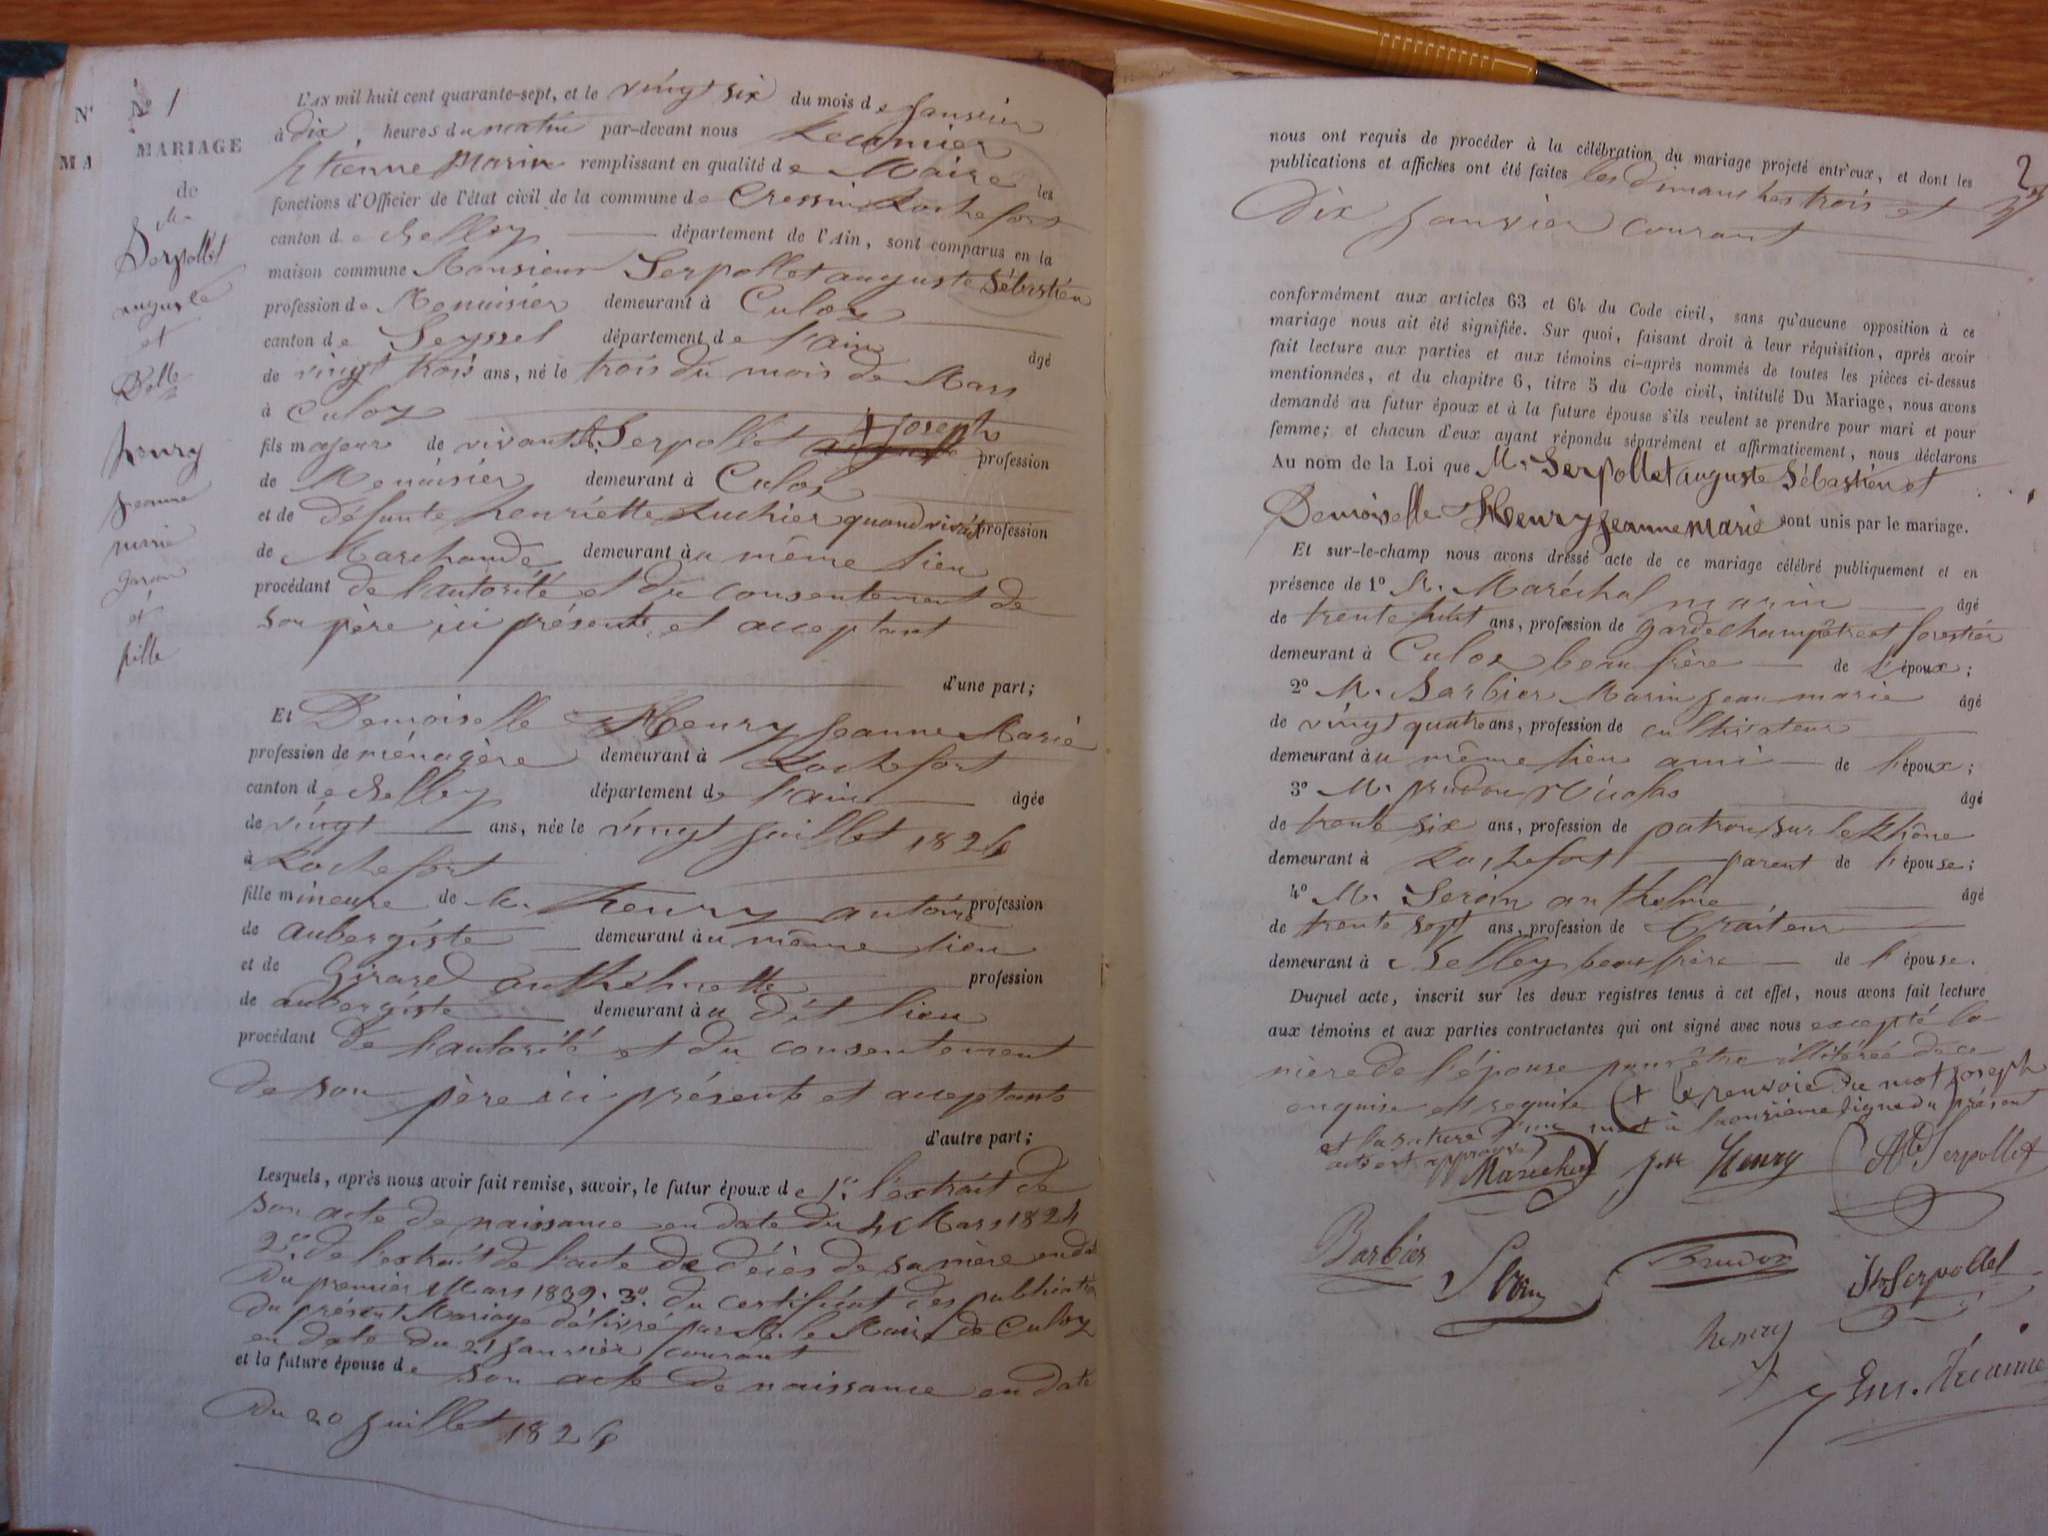 N°
MA
N° 1
MARIAGE
de
Mr
Serpollet
auguste
et
Delle
henry
jeanne
marie
garcon
et
fille
L'AN mil huit cent quarante-sept, et le vingt six du mois de Janvier
à dix heures du matin par-devant nous Recamier
Etienne Marin remplissant en qualité de Maire les
fonctions d'Officier de l'état civil de la commune de Cressin Rochefort
canton de Belley département de l'Ain, sont comparus en la
maison commune Monsieur Serpollet auguste Sébastien
profession de Menuisier demeurant à Culoz
canton de Seyssel département de l'ain âgé
de vingt trois ans, né le trois du mois de Mars
à Culoz
fils majeure de vivant Serpollet + joseph profession
de Menuisier demeurant à Culoz
et de défunte henriette Luchier quand vivait profession
de Marchande demeurant à u même lieu
procédant de l'autorité et du consentement de
son père ici présent et acceptant
d'une part;
Et Demoiselle Henry Jeanne Marie
profession de ménagère demeurant à Rochefort
canton de Belley département de l'ain âgée
de vingt ans, née le vingt juillet 1826
à Rochefort
fille mineure de M. henry antoine profession
de aubergiste demeurant à u même lieu
et de Girard anthelmette profession
de aubergiste demeurant à u dit lieu
procédant de l'autorité et du consentement
de son père ici présents et acceptants
d'autre part;
Lesquels, après nous avoir fait remise, savoir, le futur époux de 1° l'extrait de
son acte de naissance en date du 4 Mars 1824
2° de l'extrait de l'acte de décès de sa mère en date
du premier Mars 1839. 3° du certificat des publications
du présent Mariage délivré par M. le Maire de Culoz
en date du 21 janvier courant
et la future épouse de son acte de naissance en date
du 20 juillet 1826
2
nous ont requis de procéder à la célébration du mariage projeté entr'eux, et dont les
publications et affiches ont été faites les dimanches trois et
Dix janvier courant
conformément aux articles 63 et 64 du Code civil, sans qu'aucune opposition à ce
mariage nous ait été signifiée. Sur quoi, faisant droit à leur réquisition, après avoir
fait lecture aux parties et aux témoins ci-après nommés de toutes les pièces ci-dessus
mentionnées, et du chapitre 6, titre 5 du Code civil, intitulé Du Mariage, nous avons
demandé au futur époux et à la future épouse s'ils veulent se prendre pour mari et pour
femme; et chacun d'eux ayant répondu séparément et affirmativement, nous déclarons
Au nom de la Loi que M. Serpollet auguste Sébastien et
Demoiselle Henry jeanne marie sont unis par le mariage.
Et sur-le-champ nous avons dressé acte de ce mariage célébré publiquement et en
présence de 1° M. Maréchal marin âgé
de trente huit ans, profession de garde champêtre et forestier
demeurant à Culoz beau frère de l'époux;
2° M. Barbier Marin jean marie âgé
de vingt quatre ans, profession de cultivateur
demeurant à u même lieu ami de l'époux;
3° M. prudon Nicolas âgé
de trente six ans, profession de patron sur le Rhône
demeurant à Rochefort parent de l'épouse;
4° M. Seroin anthelme âgé
de trente sept ans, profession de Traiteur
demeurant à Belley beau frère de l'épouse.
Duquel acte, inscrit sur les deux registres tenus à cet effet, nous avons fait lecture
aux témoins et aux parties contractantes qui ont signé avec nous excepté la
mère de l'épouse pour être illitérée de ce
enquise et requise (+ le renvoie du mot joseph
et la rature d'un mot à la onzième ligne du présent
acte est approuvé)
Maréchal Jne Henry Ate Serpollet
Barbier Prudon Jh Serpollet
henry